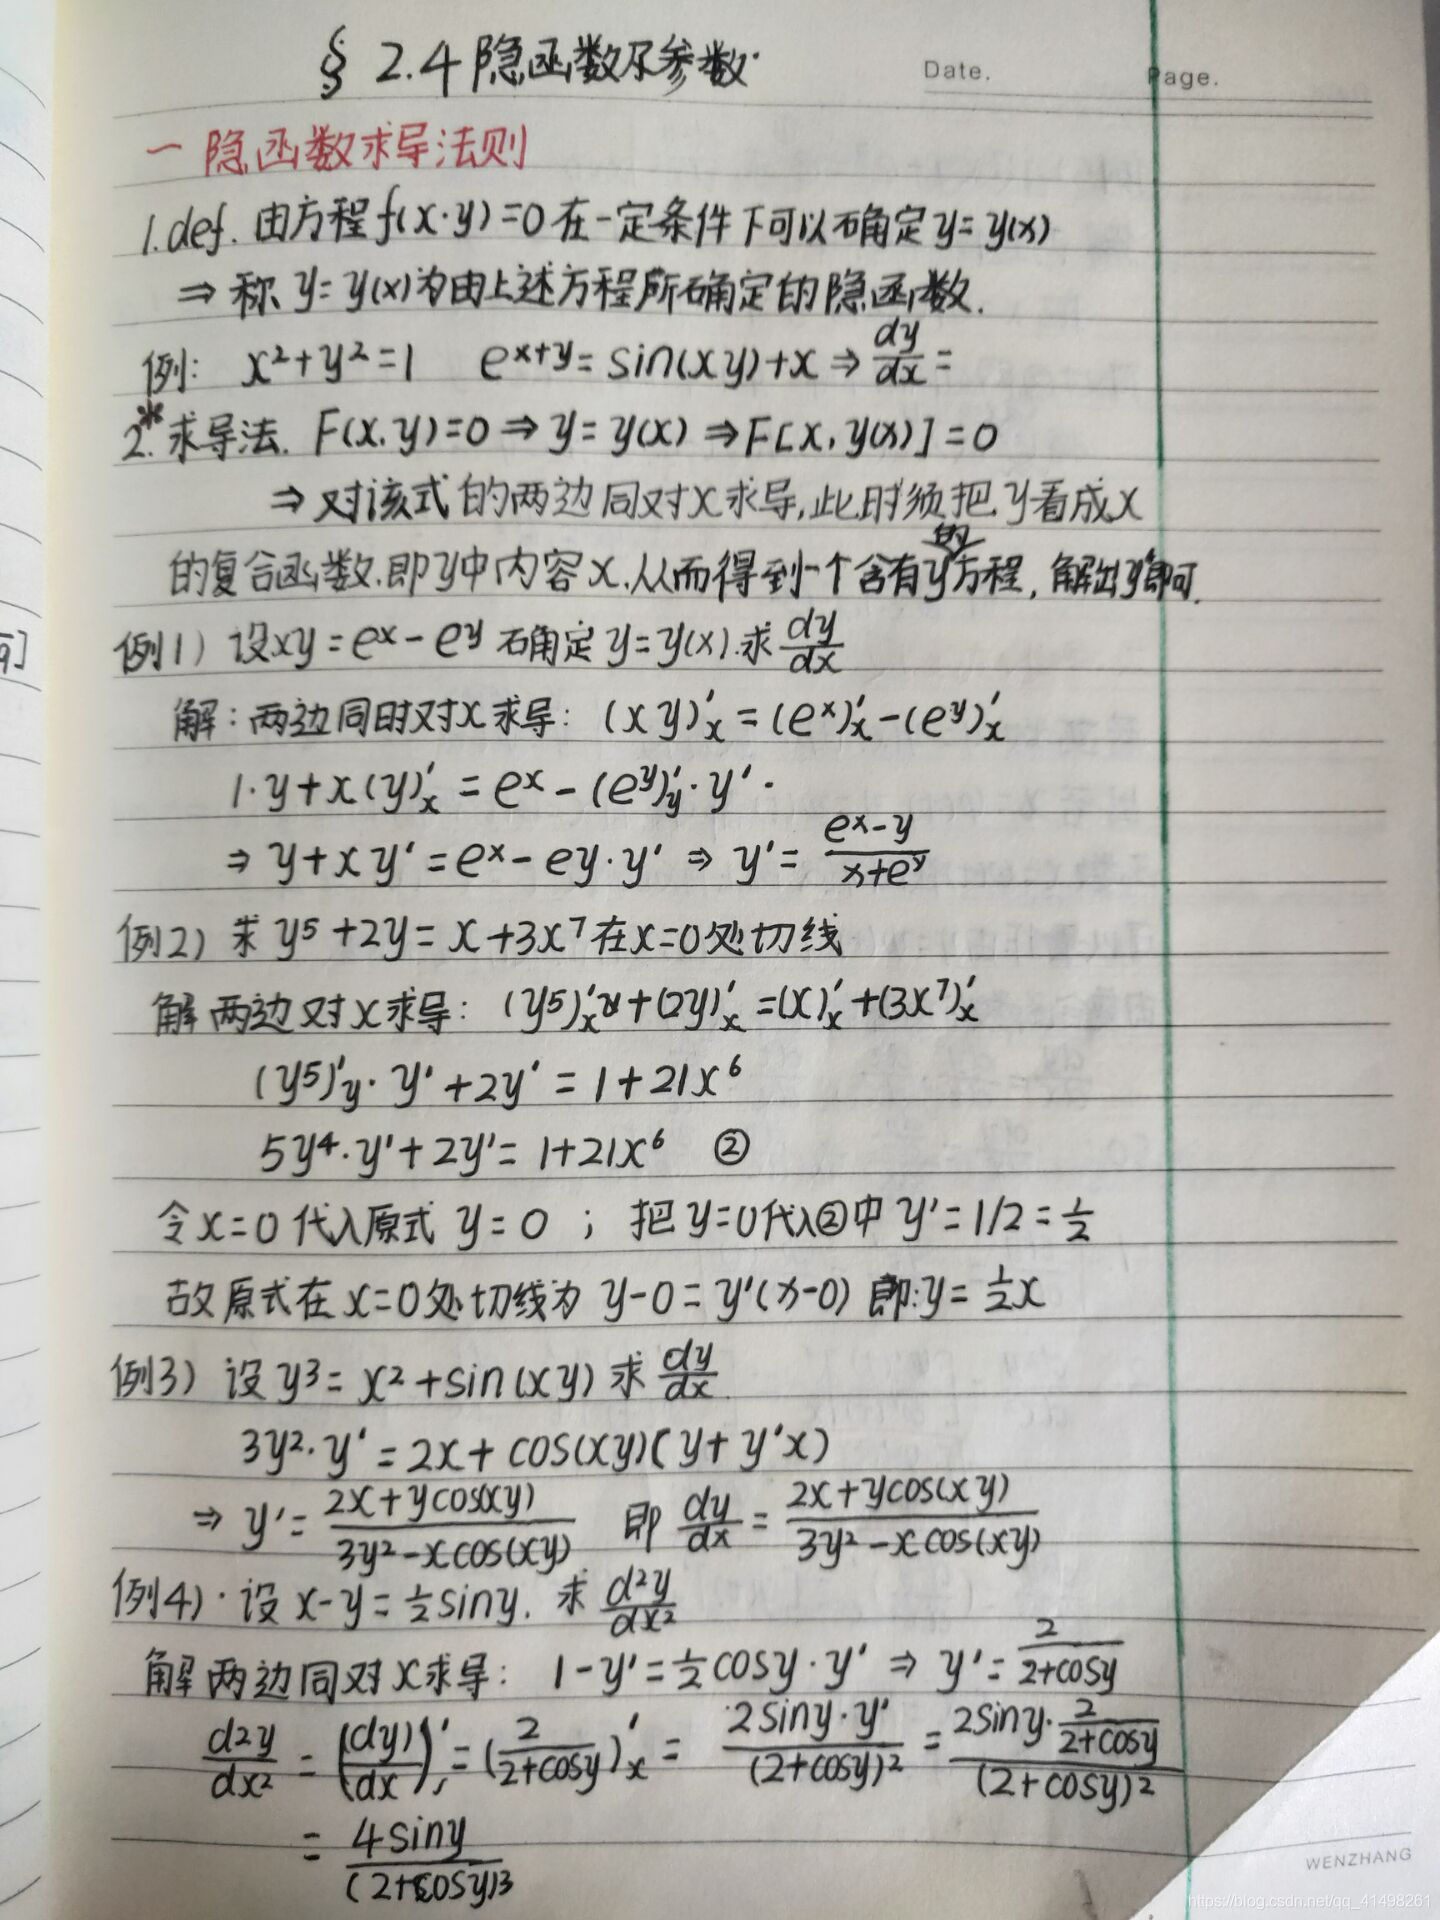 § 2.4 隐函数及参数.
Date.
Page.
一 隐函数求导法则
1.def. 由方程 f(x·y)=0 在一定条件下可以确定 y=y(x)
⇒ 称 y=y(x)为由上述方程所确定的隐函数.
例: x²+y²=1 e^{x+y}=sin(xy)+x ⇒ dy/dx =
2.* 求导法. F(x,y)=0 ⇒ y=y(x) ⇒ F[x,y(x)]=0
⇒ 对该式的两边同对x求导,此时须把y看成x
的复合函数.即y中内容x.从而得到一个含有y'的方程, 解出y'即可.
例1) 设xy=e^x-e^y 确定 y=y(x).求 dy/dx
解: 两边同时对x求导: (xy)'_x=(e^x)'_x-(e^y)'_x
1·y+x(y)'_x=e^x-(e^y)'_y·y'·
⇒ y+xy'=e^x-ey·y' ⇒ y'=(e^x-y)/(x+e^y)
例2) 求 y⁵+2y=x+3x⁷在x=0处切线
解 两边对x求导: (y⁵)'_x+(2y)'_x=(x)'_x+(3x⁷)'_x
(y⁵)'_y·y'+2y'=1+21x⁶
5y⁴·y'+2y'=1+21x⁶ ②
令x=0代入原式 y=0 ; 把y=0代入②中 y'=1/2=½
故原式在x=0处切线为 y-0=y'(x-0) 即:y=½x
例3) 设 y³=x²+sin(xy) 求 dy/dx.
3y²·y'=2x+cos(xy)(y+y'x)
⇒ y'=(2x+ycos(xy))/(3y²-xcos(xy)) 即 dy/dx=(2x+ycos(xy))/(3y²-xcos(xy))
例4)·设 x-y=½siny. 求 d²y/dx²
解 两边同对x求导: 1-y'=½cosy·y' ⇒ y'=2/(2+cosy)
d²y/dx²=((dy)/dx)'=(2/(2+cosy))'_x=(2siny·y')/(2+cosy)²=(2siny·2/(2+cosy))/(2+cosy)²
=4siny/(2+cosy)³
WENZHANG
https://blog.csdn.net/qq_41498261